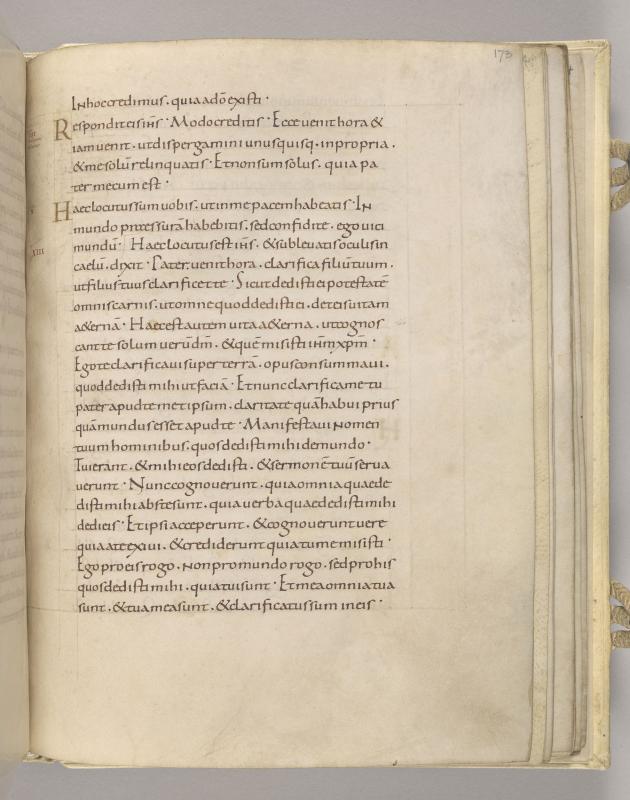 173
In hoc credimus. quia a dõ existi.
Respondit eis iħs. Modo creditis. Ecce venit hora &
iam venit. ut dispergamini unusquisq. in propria.
& me solũ relinquatis. Et non sum solus. quia pa
ter mecum est.
Haec locutus sum vobis. ut in me pacem habeatis. In
mundo pressurã habebitis. sed confidite. ego vici
mundũ. Haec locutus est iħs. & sublevatis oculis in
xiii
caelũ. dixit. Pater. venit hora. clarifica filiũ tuum.
ut filius tuus clarificet te. Sicut dedisti ei potestatẽ
omnis carnis. ut omne quod dedisti ei. det eis vitam
a&ernã. Haec est autem vita a&erna. ut cognos
cant te solum verũ dm̃. & quẽ misisti ihm̃ xpm̃.
Ego te clarificavi super terrã. opus consummavi.
quod dedisti mihi ut faciã. Et nunc clarifica me tu
pater apud temet ipsum. claritate quã habui prius
quã mundus esset apud te. Manifestavi nomen
tuum hominibus. quos dedisti mihi de mundo.
Tui erant. & mihi eos dedisti. & sermonẽ tuũ serva
verunt. Nunc cognoverunt. quia omnia quae de
disti mihi abs te sunt. quia verba quae dedisti mihi
dedi eis. Et ipsi acceperunt. & cognoverunt vere
quia a te exivi. & crediderunt quia tu me misisti.
Ego pro eis rogo. non pro mundo rogo. sed pro his
quos dedisti mihi. quia tui sunt. Et mea omnia tua
sunt. & tua mea sunt. & clarificatus sum in eis.